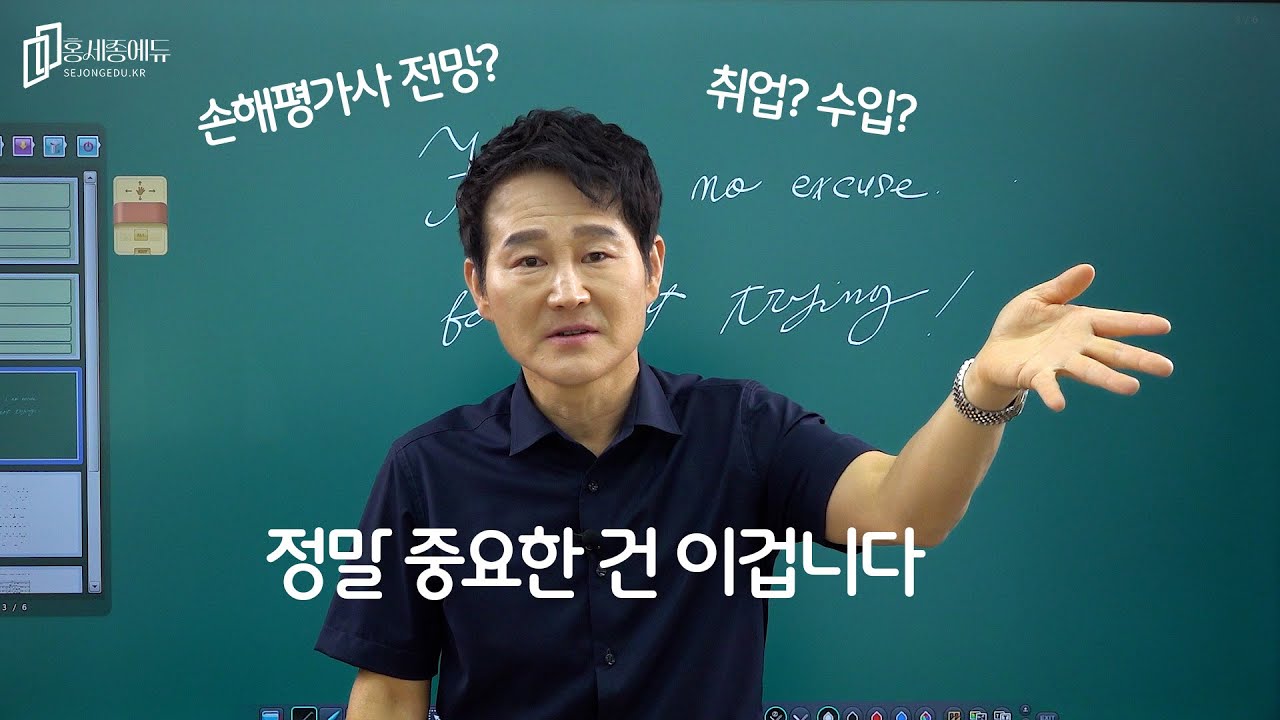 홍세종에듀
SEJONGEDU.KR
손해평가사 전망?
취업? 수입?
no excuse.
trying!
정말 중요한 건 이겁니다
3 / 6
EXIT